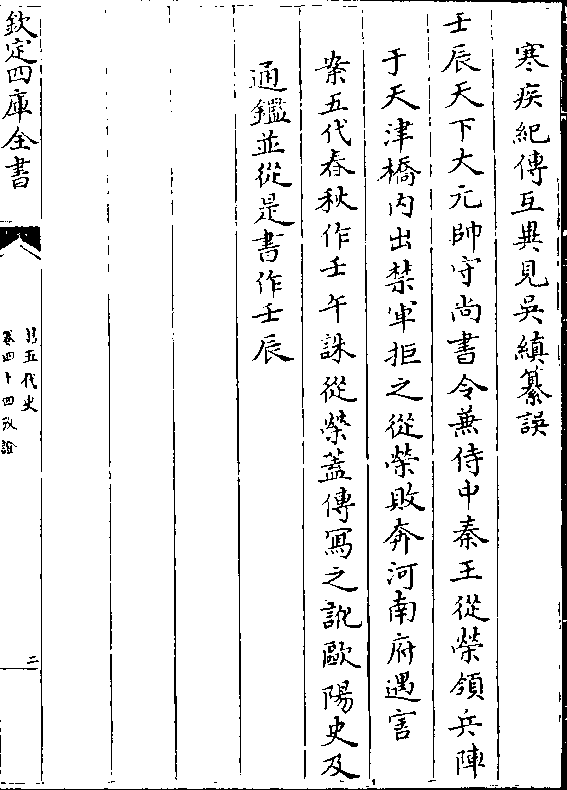 寒疾紀傳互異見吳縝纂誤
壬辰天下大元帥守尚書令兼侍中秦王從榮領兵陣
于天津橋內出禁軍拒之從榮敗奔河南府遇害
案五代春秋作壬午誅從榮蓋傳寫之訛歐陽史及
通鑑並從是書作壬辰
欽定四庫全書
舊五代史
卷四十四攷證
三